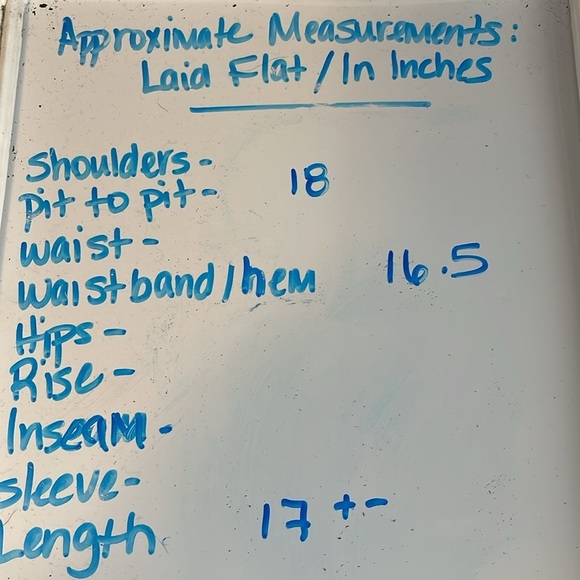 Approximate Measurements:
Laid Flat / In Inches
Shoulders -
pit to pit - 18
waist -
waistband / hem 16.5
Hips -
Rise -
Inseam -
Sleeve -
Length 17 + -